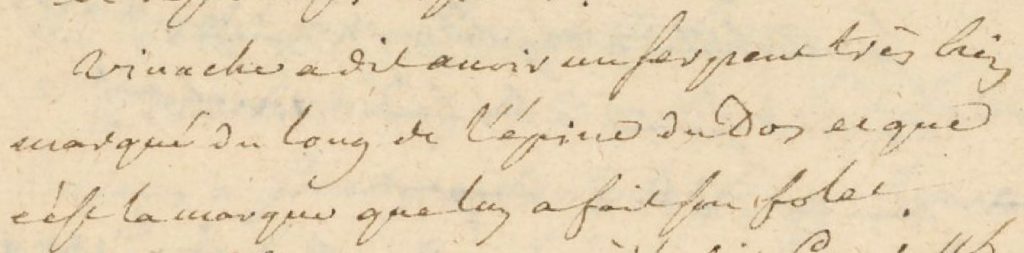 Vinache a dit avoir un serpent très bien
marqué du long de l'épine du Dos et que
c'est la marque que luy a fait son folet.